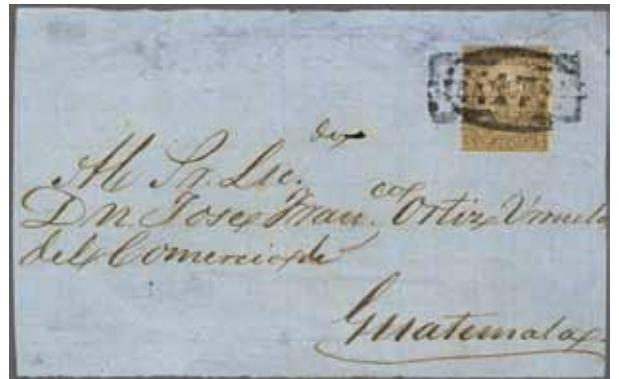 Al Sr. Lic.
Dn Jose Fran.co Ortiz Urruela
del Comercio de
Guatemala